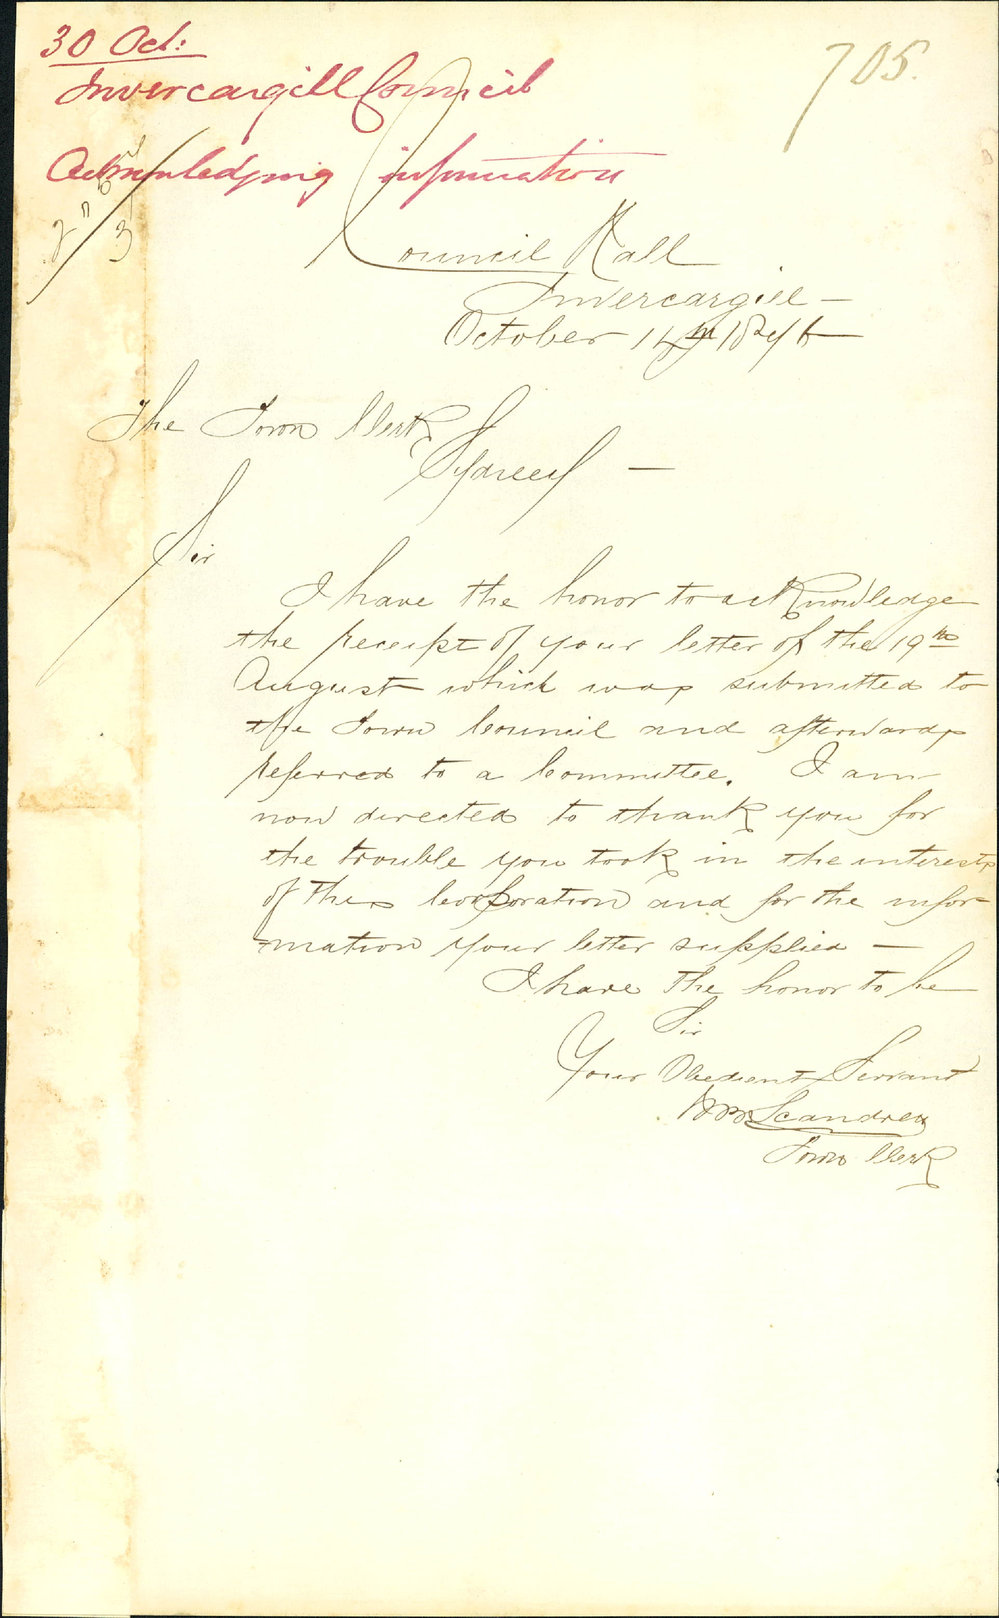 30 Oct:
705.
Invercargill Council
Acknowledging information
Council Hall
Invercargill —
October 14th 1876
The Town Clerk
Sydney —
Sir
I have the honor to acknowledge
the receipt of your letter of the 19th
August which was submitted to
the Town Council and afterwards
referred to a Committee. I am
now directed to thank you for
the trouble you took in the interests
of this Corporation and for the infor-
mation your letter supplied —
I have the honor to be
Sir
Your Obedient Servant
Wm Scandrett
Town Clerk